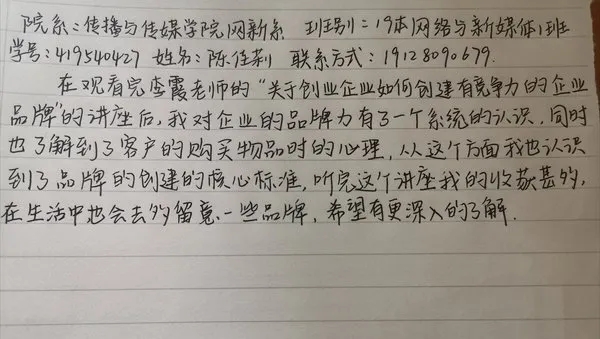 院系:传播与传媒学院网新系 班别:19本网络与新媒体1班
学号:419540427 姓名:陈佳莉 联系方式:19128090679.
在观看完李霞老师的“关于创业企业如何创建有竞争力的企业
品牌”的讲座后,我对企业的品牌力有了一个系统的认识,同时
也了解到了客户的购买物品时的心理,从这个方面我也认识
到了品牌的创建的核心标准,听完这个讲座我的收获甚多,
在生活中也会去多留意一些品牌,希望有更深入的了解.